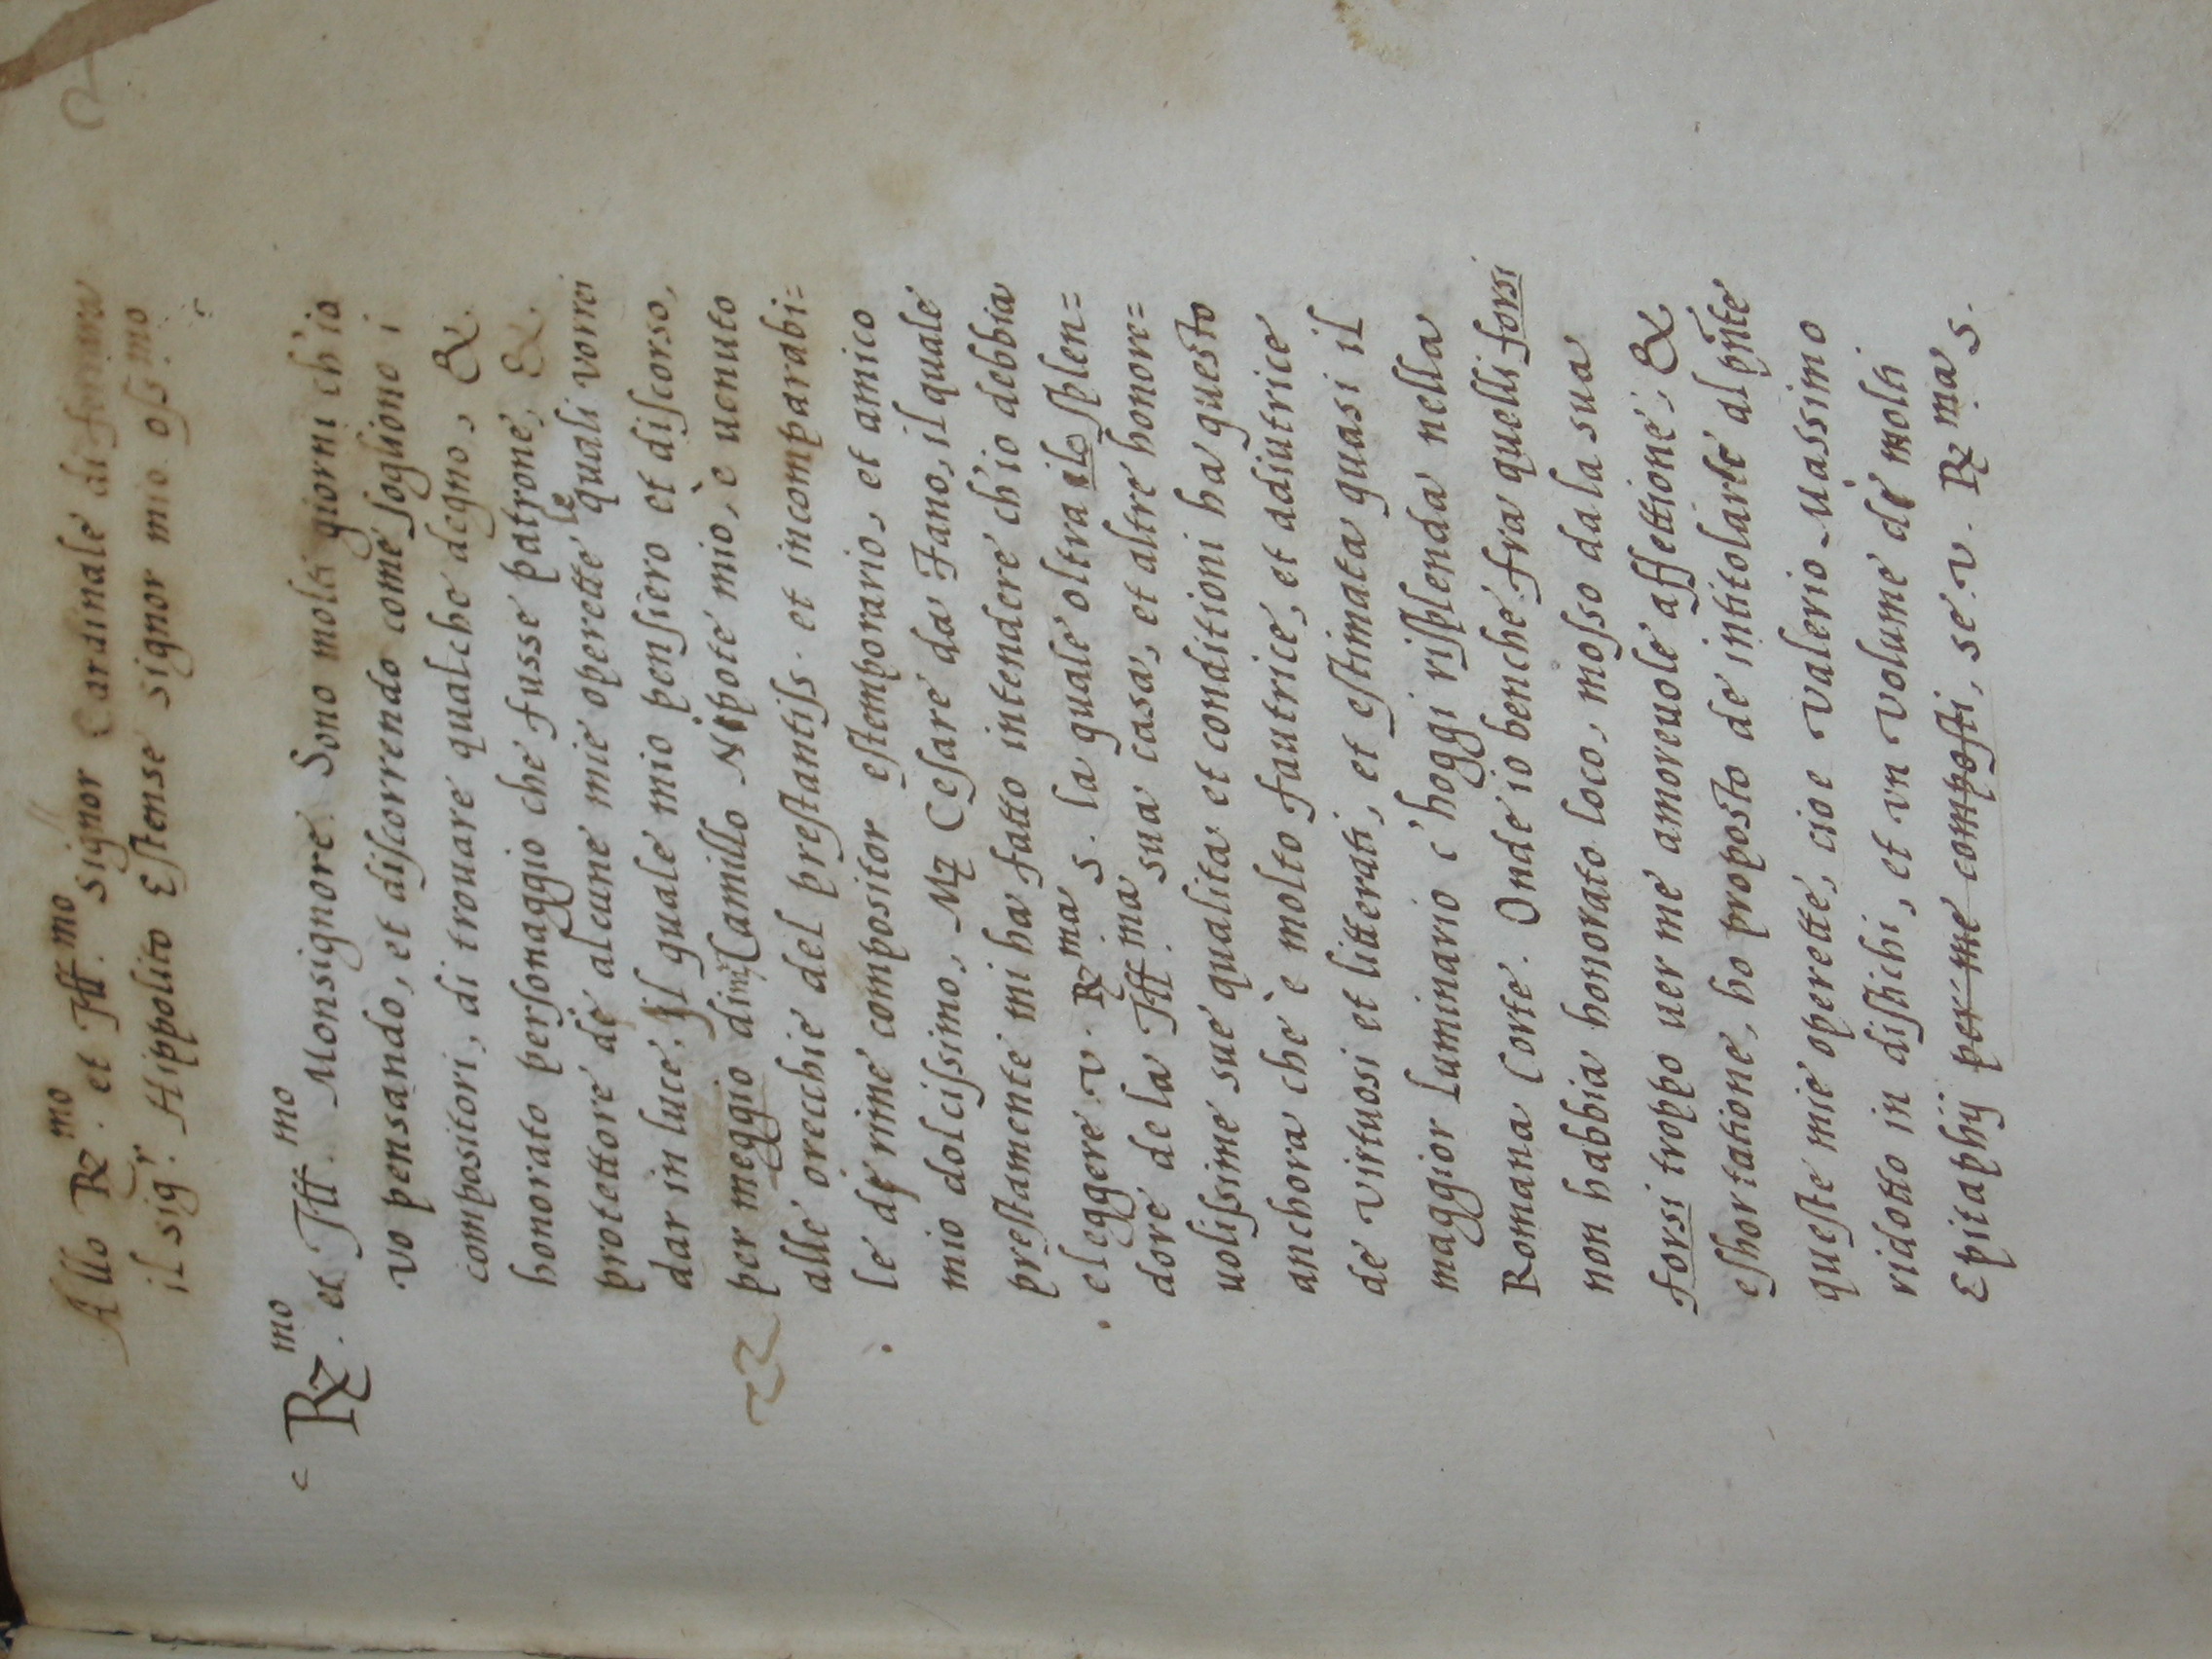 Allo R.mo et Ill.mo signor Cardinale di ferrara
il sig.r Hippolito Estense signor mio oss.mo
R.mo et Ill.mo Monsignore. Sono molti giorni ch'io
vo pensando, et discorrendo come sogliono i
compositori, di trouare qualche degno, &
honorato personaggio che fusse patrone, &
protettore de alcune mie operette le quali vorrei
dar in luce. Il quale mio pensiero et discorso,
per meggio di Camillo Nipote mio, è uenuto
alle orecchie del prestantiss. et incomparabi=
le de rime compositor estemporario, et amico
mio dolcissimo, Mz Cesare da Fano, il quale
prestamente mi ha fatto intendere ch'io debbia
eleggere v. R.ma s. la quale oltra ilo splen=
dore de la Ill.ma sua casa, et altre honore=
uolissime sue qualita et conditioni ha questo
anchora che è molto fautrice, et adiutrice
de virtuosi et litterati, et estimata quasi il
maggior luminario c'hoggi risplenda nella
Romana Corte. Onde io benche fra quelli forsi
non habbia honorato loco, mosso da la sua
forsi troppo uer me amoreuole affettione, &
eshortatione, ho proposto de intitolarle al pñte
queste mie operette, cioe Valerio Massimo
ridotto in distichi, et vn volume de molti
Epitaphij per me composti, se v. R.ma s.